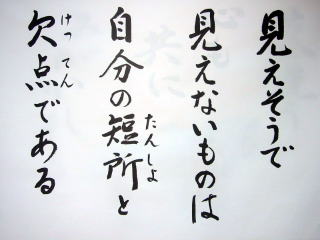 見えそうで
見えないものは
自分の短所と
欠点である
たんしょ
けってん